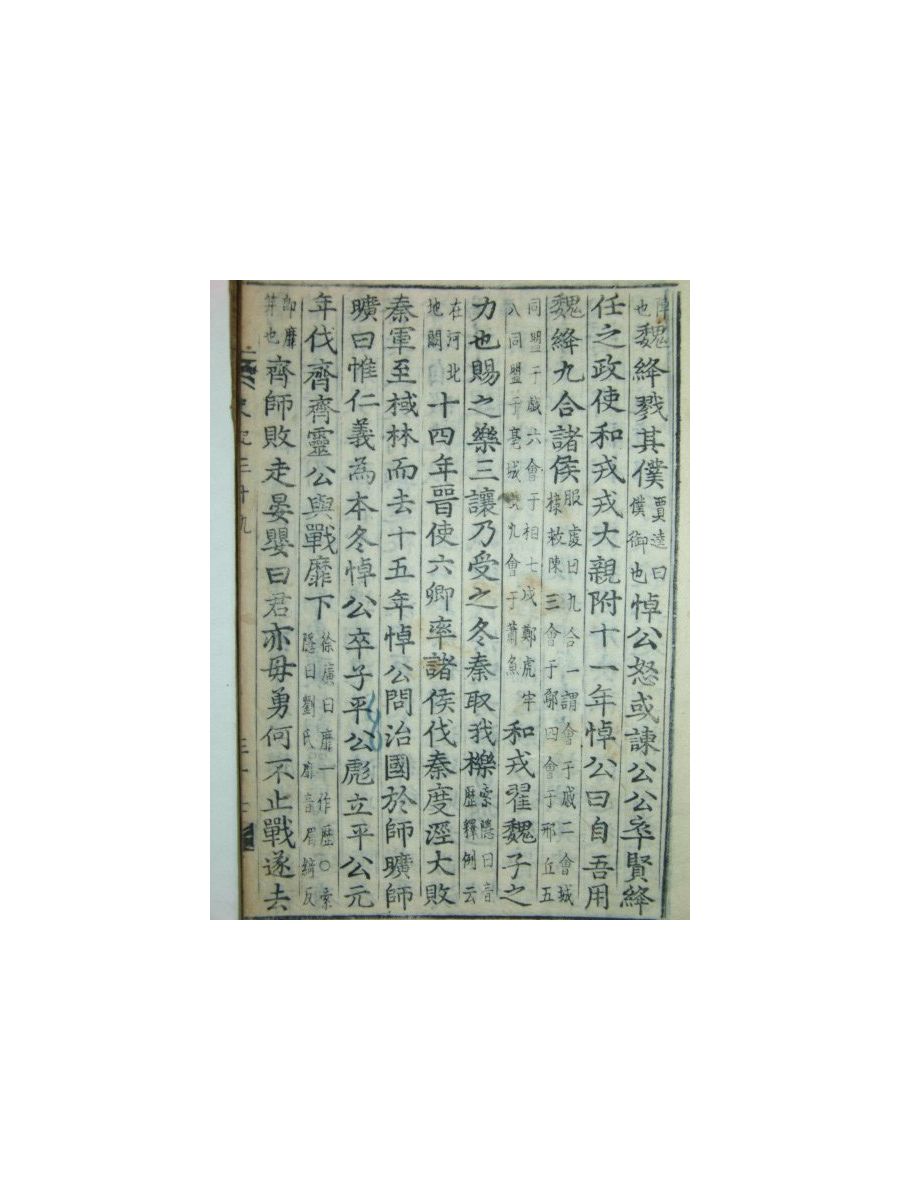 陣也魏絳戮其僕賈逵曰僕御也悼公怒或諫公公卒賢絳
任之政使和戎戎大親附十一年悼公曰自吾用
魏絳九合諸侯服虔曰九合一謂會于戚二會城棣救陳三會于鄬四會于邢丘五
同盟于戲六會于柤七戍鄭虎牢八同盟于亳城北九會于蕭魚和戎翟魏子之
力也賜之樂三讓乃受之冬秦取我櫟索隱曰音歷釋例云
在河北地闕十四年晉使六卿率諸侯伐秦度涇大敗
秦軍至棫林而去十五年悼公問治國於師曠師
曠曰惟仁義為本冬悼公卒子平公彪立平公元
年伐齊齊靈公與戰靡下徐廣曰靡一作歷○索隱曰劉氏靡音眉綺反
即靡笄也齊師敗走晏嬰曰君亦毋勇何不止戰遂去
史記三十九